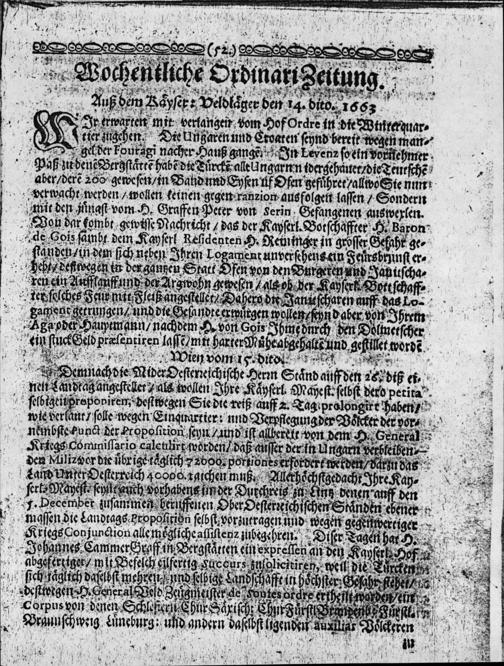 (52.)
Wochentliche Ordinari Zeitung.
Auß dem Käyser: Veldläger den 14. dito. 1663
WIr erwarten mit verlangen vom Hof Ordre in die Winterquar-
tier zugehen. Die Ungaren und Croaten seynd bereit wegen man-
gel der Fouragi nacher Hauß gangē. In Levenz so ein vornehmer
Paß zu denē Bergstätten habē die Türckē alle Ungarn nidergehauet/die Teutschē
aber/derē 200 gewesen/in Band und Eysen uf Ofen geführet/allwo Sie nun
verwacht werden/wollen keinen gegen ranzion ausfolgen lassen/Sondern
mit den jüngst vom H. Graffen Peter von Serin Gefangenen auswexlen.
Von dar kombt gewisse Nachricht/das der Kayserl. Botschaffter H. Baron
de Gois sambt dem Kayserl Residenten H. Reninger in grosser Gefahr ge-
standen/in dem sich neben Ihren Logament unversehens ein Feursbrunst er-
hebt/deßwegen in der gantzen Statt Ofen von den Burgeren und Janitscha-
ren ein Aufflauff und der Argwohn gewesen/als ob der Kayserl. Bottschaff-
ter solches Feur mit Fleiß angestellet/Dahero die Janitscharen auff das Lo-
gament getrungen/und die Gesandte erwürgen wollen/seynd aber von Ihrem
Aga oder Hauptmann/nachdem H. von Gois Ihme durch den Dolmetscher
ein stuck Geld præsentiren lassē/mit harter Mühe abgehaltē und gestillet wordē
Wien vom 15. dito.
Demnach die Nider Oesterreichische Herrn Ständ auff den 26. diß ei-
nen Landtag angestellet/als wollen Ihre Käyserl. Mayest. selbst dero petita
selbigen proponiren, deßwegen Sie die reiß auff 2. Tag prolongirt haben/
wie verlaut/solle wegen Einquartier: und Verpflegung der Völcker der vor-
nembste Punct der Proposition seyn/und ist allbereit von dem H. General
Kriegs Commissario calculirt worden/daß ausser der in Ungarn verbleiben-
den Miliz vor die übrige täglich 72000. portiones erfordert werden/darzu das
Land Unter Oesterreich 40000. raichen muß. Allerhöchstgedacht Ihre Kay-
serl. Mayest. seynd auch vorhabens in der Durchreis zu Lintz denen auff den
5. December zusamen beruffenen Ober Oesterreichischen Ständen ebener
massen die Landtags Proposition selbst vorzutragen und wegen gegenwertiger
Kriegs Conjunction alle mögliche assistenz zubegehren. Diser Tagen hat H.
Johannes Cammer Graff in Bergstätten ein expressen an den Kayserl. Hof
abgefertiget/mit Befelch eilfertig succurs zusolicitiren, weil die Türcken
sich täglich daselbst mehren/und selbige Landschafft in höchster Gefahr stehet/
deßwegen H. General Veld Zeugmeister de Souches ordre ertheilt worden/ein
Corpus von denen Schlesiern Chur Säxisch: Chur Fürstl. Brandenb: Fürstl.
Braunschweig Lüneburg: und andern daselbst ligenden auxiliar Völckeren